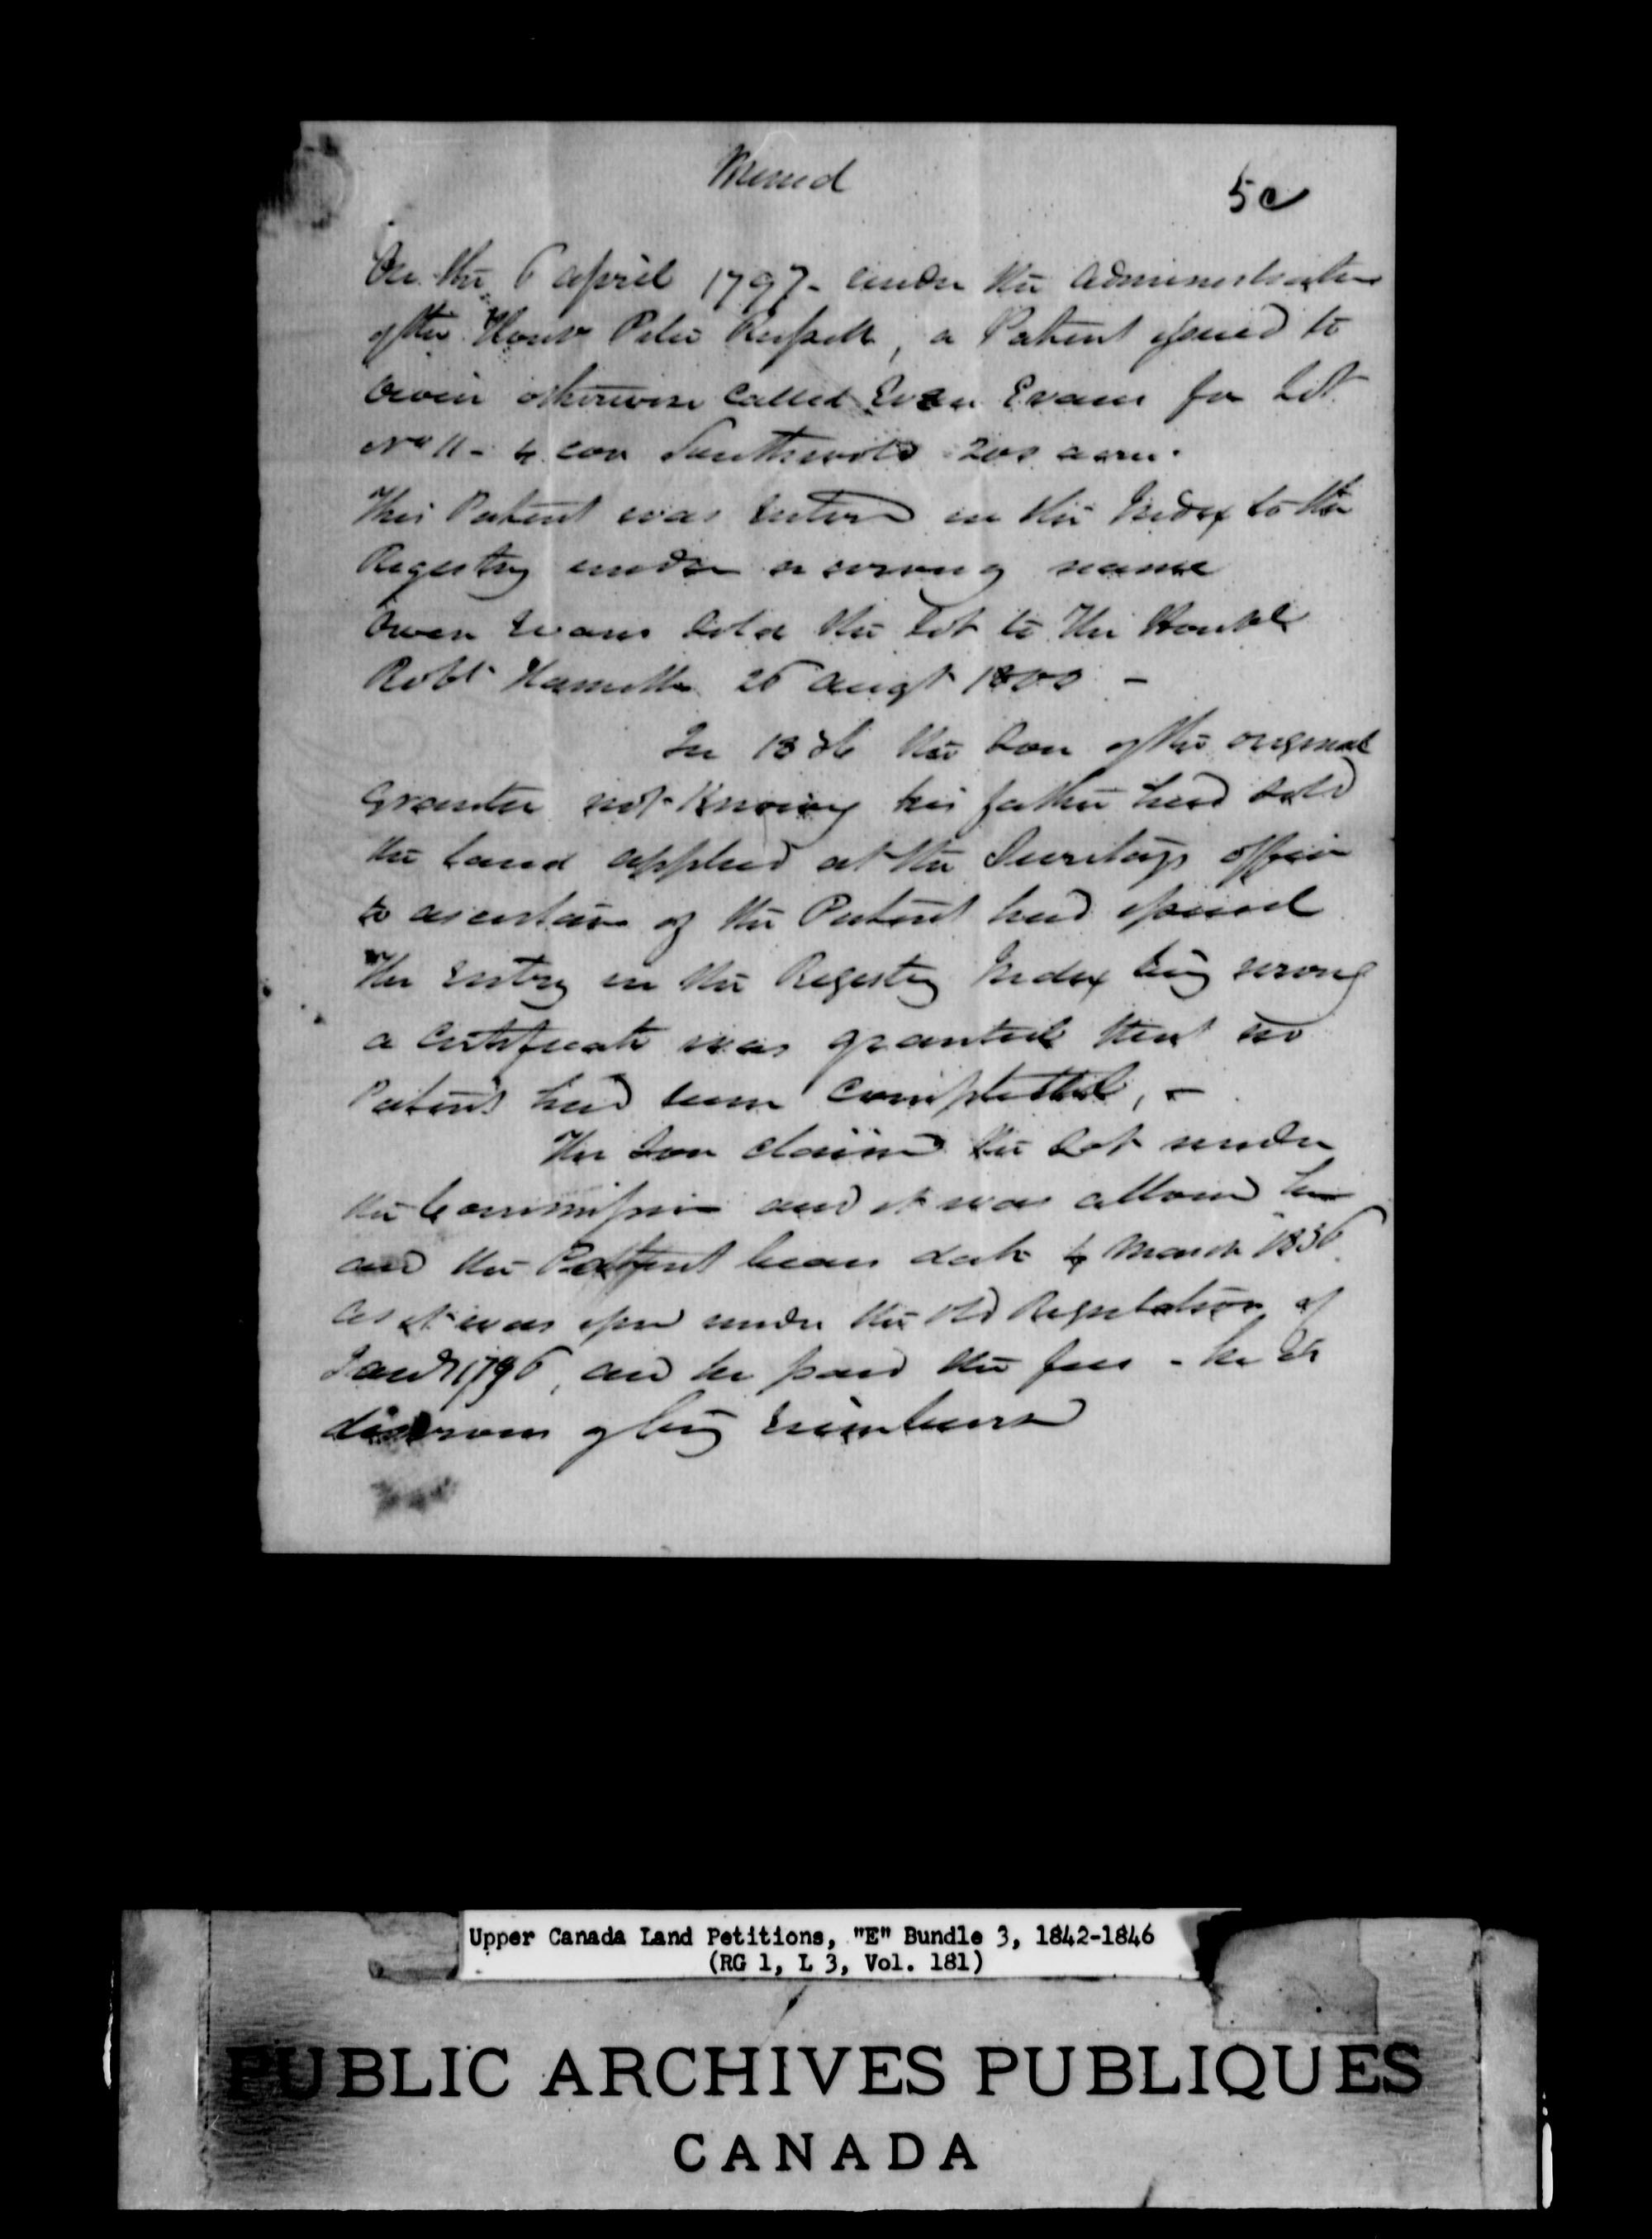 Memd
5c
On the 6 April 1797 - under the administration
of the Honble Peter Russell, a Patent issued to
Owen otherwise called Evan Evans for Lot
No 11 - 4 con Southwold 200 acres.
This Patent was Entered in the Index to the
Registry under a wrong name
Owen Evans sold the lot to The Honble
Robt Hamilton 26 Augt 1800 -
In 1836 the Son of the original
Grantee not Knowing his father had sold
the Land applied at the Secretarys office
to ascertain if the Patent had issued
The Entry in the Registry Index being wrong
a Certificate was granted that no
Patent had been completed, -
The Son claimed the Lot under
the Commission and it was allowed him
and the Patent bears date 4 March 1836
as it was issued under the old Regulation of
1796, and he paid the fees - he is
desirous of being reimbursed
Upper Canada Land Petitions, "E" Bundle 3, 1842-1846
(RG 1, L 3, Vol. 181)
PUBLIC ARCHIVES PUBLIQUES
CANADA